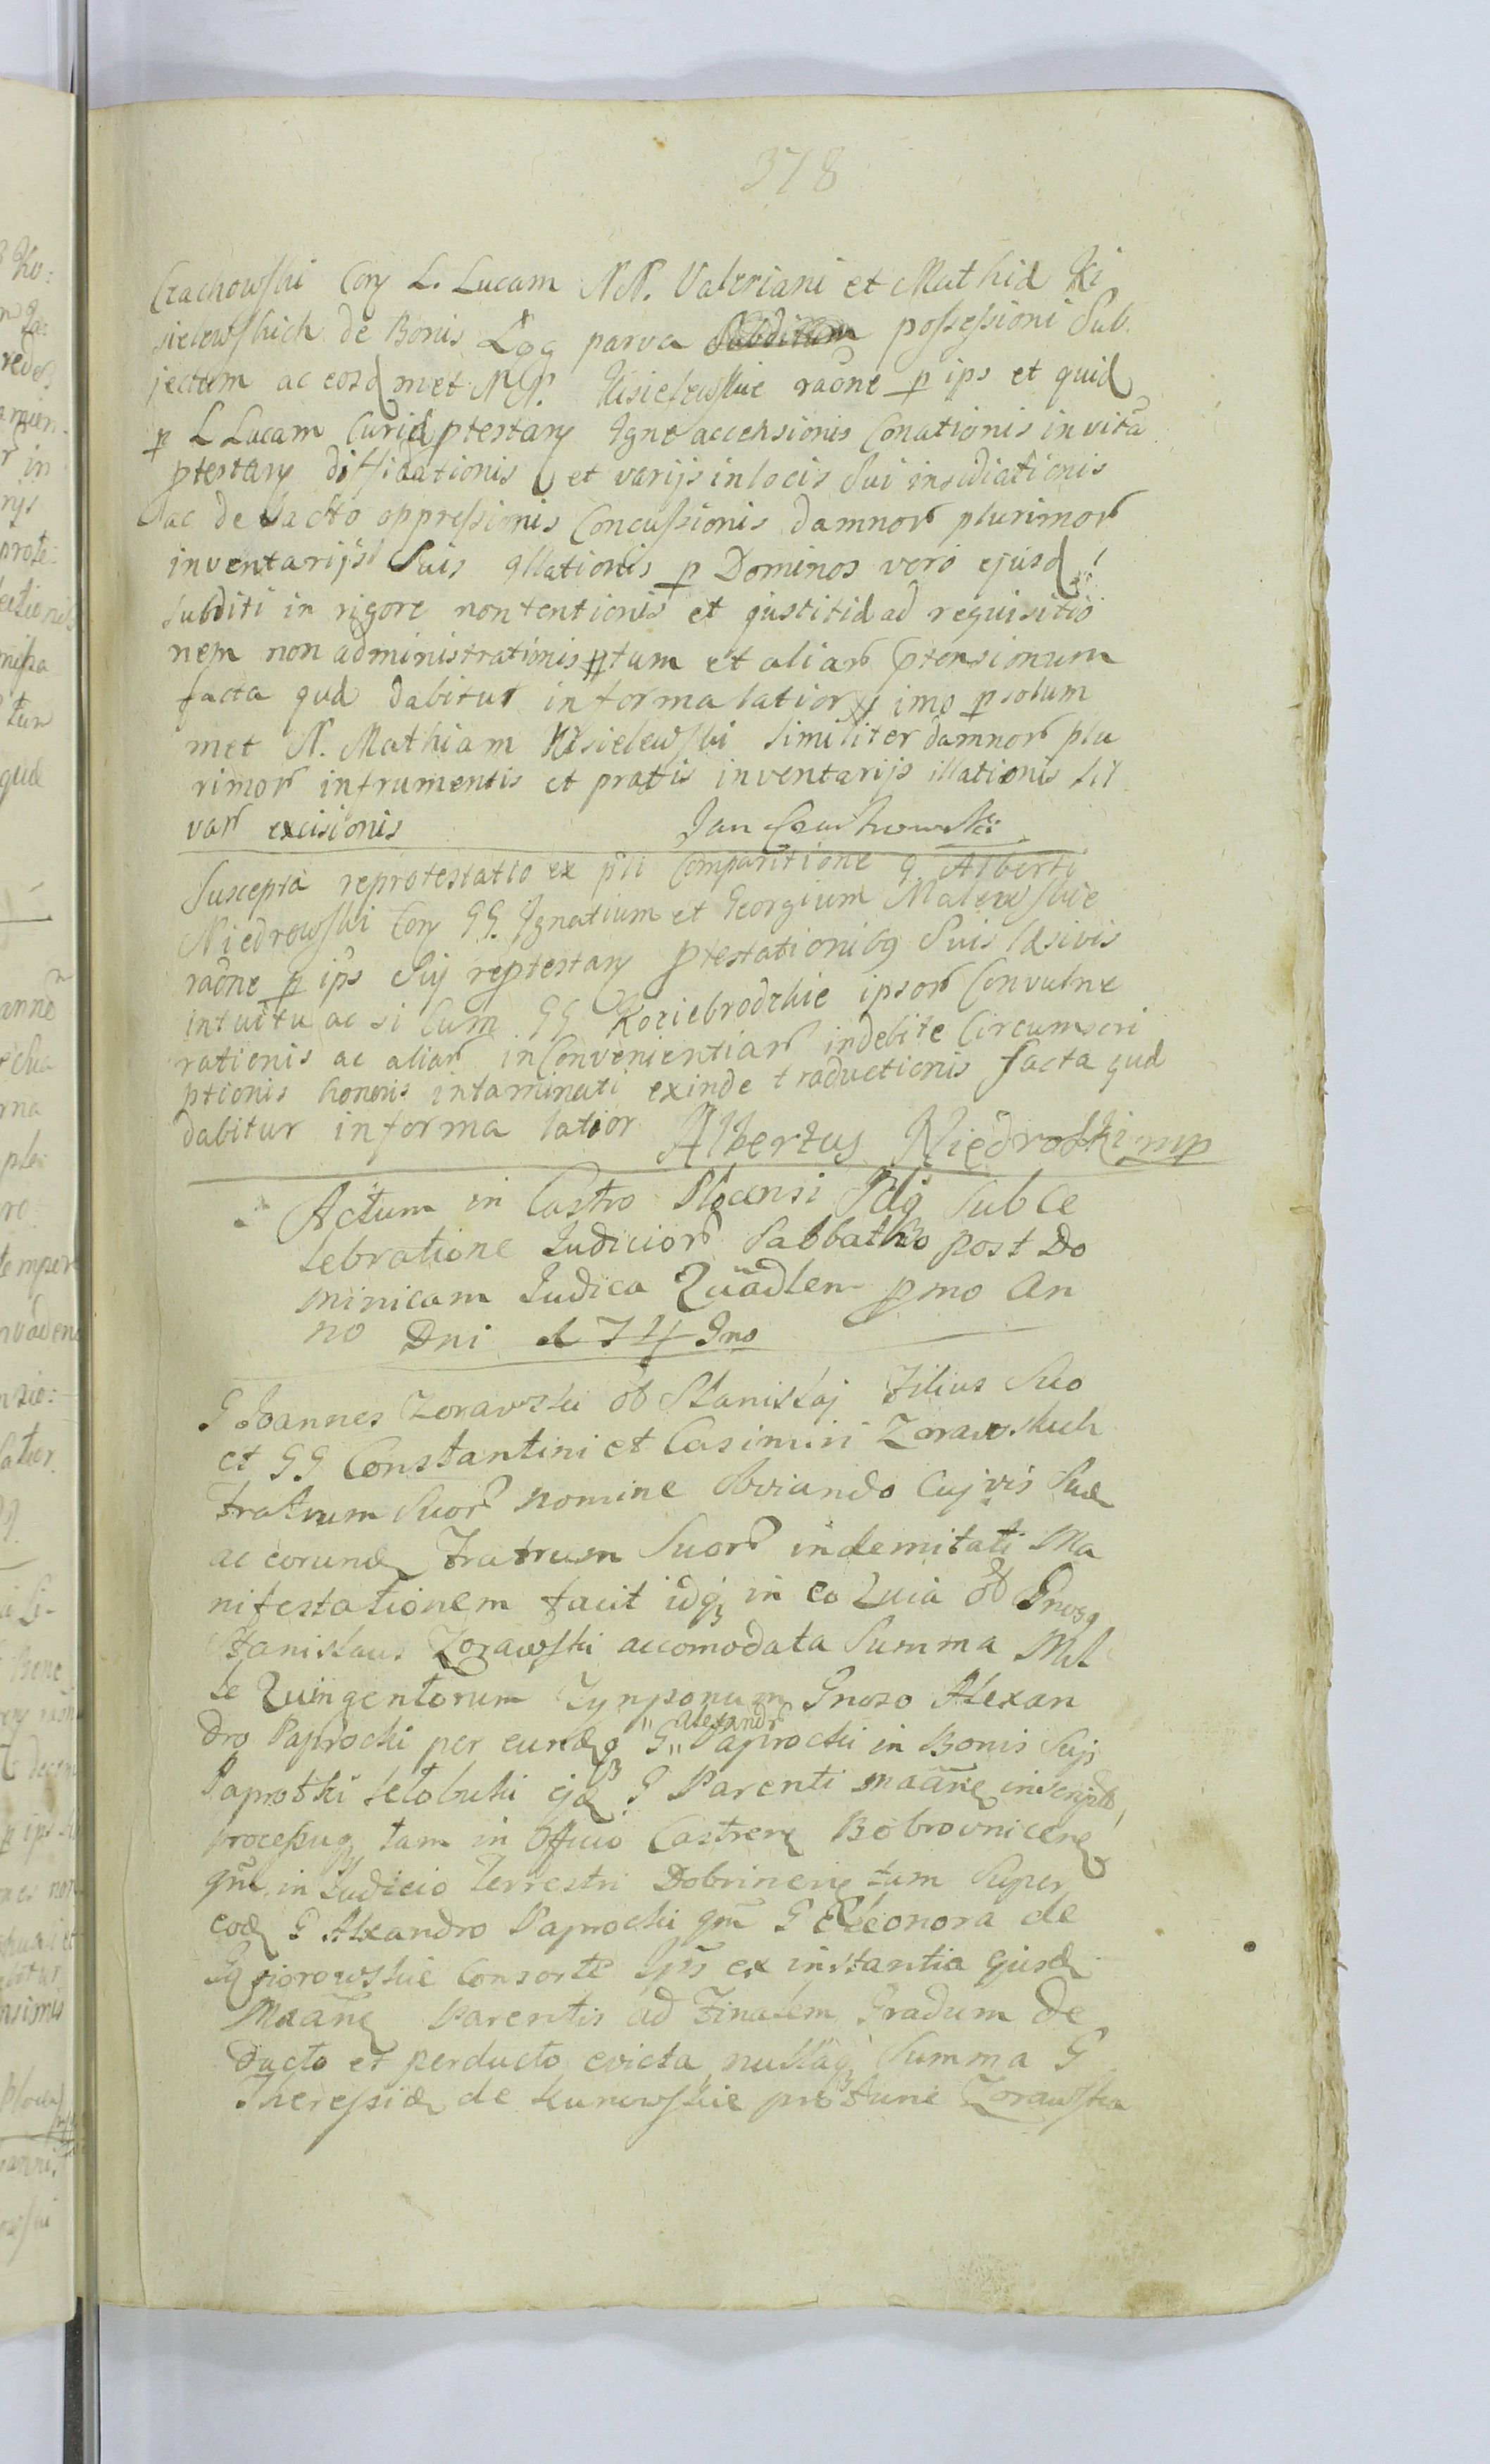 378
Czachowski Con L. Lucam NN. Valeriani et Mathiæ Ki
sielewskich de Bonis Łęg parva possessioni Sub
jectum ac eosd met NN. Kisielewskie raõne p ips et quid
p L Lucam Curiæ ptestan Igne accensionis Conationis in vita
ptestan diffidationis et varijs in locis Sui insidiationis
ac de facto oppressionis Concussionis damnor plurimor
inventarijs Suis illationis p Dominos vero ejusd
subditi in rigore non tentionis et justitiæ ad requisitio
nem non administrationis ptam et aliar ptensionum
facta quæ dabitur in forma latiori imo p solum
met N. Mathiam Kisielewski similiter damnor plu
rimor in frumentis et pratis inventarijs illationis sil
var excisionis Jan Czachowski
Suscepta reprotestatio ex pñti Comparitione G Alberti
Niedrowski Con GG. Ignatium et Georgium Malewskie
raõne p ips Sui reptestan ptestationibq Suis læsivis
intuitu ac si Cum GG Koziebrodzkie ipsor Convulne
rationis ac aliar inconvenientiar indebite Circumscri
ptionis honoris intaminati exinde traductionis facta quæ
dabitur in forma latior Albertus Niedroski mp
Actum in Castro Plocensi Feria Sub Ce
lebratione Judicior Sabbatho post Do
minicam Judica Quadlem pmo An
no Dni 174
G Joannes Zorawski ol Stanislaj Filius Suo
et GG Constantini et Casimiri Zorawskich
Fratrum Suor nomine Obviando Cujvis Suæ
ac eorund Fratrum Suor indemnitati Ma
nifestationem facit idq in eo Quia ol Gnosq
Stanislaus Zorawski accomodata Summa Mil
le Quingentorum Tynponum Gnoso Alexan
dro Paprocki per eund G Alexandr Paprocki in Bonis Sujs
Paprotki ejd G Parenti inscripto
processuq tam in Officio Castren Bobrovnicen
qm in Judicio Terrestri Dobrinen tam Super
eod G Alexandro Paprocki qm G Eleonora de
Gąsiorowskie Consorte Ips ex instantia ejusd
Parentis ad Finalem Gradum de
ducto et perducto evicta nullaq Summa G
Theressiæ de Kunowskie pro tunc Zorawska